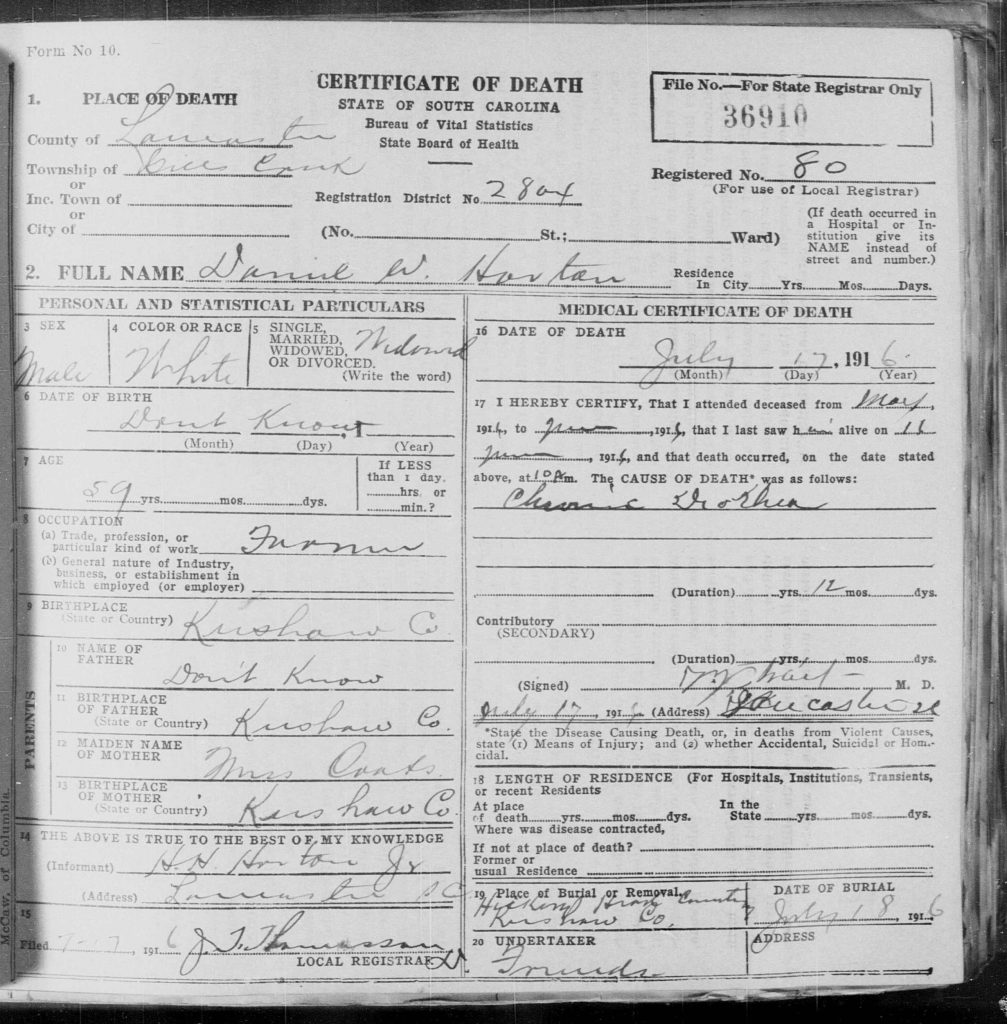 Form No 10.
CERTIFICATE OF DEATH
STATE OF SOUTH CAROLINA
Bureau of Vital Statistics
State Board of Health
File No.—For State Registrar Only
36910
1. PLACE OF DEATH
County of Lancaster
Township of Cill Creek
or
Inc. Town of
or
City of
Registration District No 2804
Registered No. 80
(For use of Local Registrar)
(No. St.; Ward)
(If death occurred in
a Hospital or In-
stitution give its
NAME instead of
street and number.)
2. FULL NAME Daniel W. Horton
Residence
In City Yrs. Mos. Days.
PERSONAL AND STATISTICAL PARTICULARS
3 SEX
Male
4 COLOR OR RACE
White
5 SINGLE,
MARRIED,
WIDOWED,
OR DIVORCED.
(Write the word)
Widowed
6 DATE OF BIRTH
Dont Know
(Month) (Day) (Year)
7 AGE
59 yrs. mos. dys.
If LESS
than 1 day.
hrs. or
min.?
8 OCCUPATION
(a) Trade, profession, or
particular kind of work Farmer
(b) General nature of Industry,
business, or establishment in
which employed (or employer)
9 BIRTHPLACE
(State or Country) Kershaw Co.
PARENTS
10 NAME OF
FATHER
Don't Know
11 BIRTHPLACE
OF FATHER
(State or Country) Kershaw Co.
12 MAIDEN NAME
OF MOTHER Miss Coats.
13 BIRTHPLACE
OF MOTHER
(State or Country) Kershaw Co
14 THE ABOVE IS TRUE TO THE BEST OF MY KNOWLEDGE
(Informant) H. H. Horton Jr
(Address) Lancaster S.C.
15
Filed 7-17 1916 J. T. Thomasson
LOCAL REGISTRAR
McCaw, of Columbia.
MEDICAL CERTIFICATE OF DEATH
16 DATE OF DEATH
July 17, 1916.
(Month) (Day) (Year)
17 I HEREBY CERTIFY, That I attended deceased from May,
1916, to June, 1916, that I last saw him alive on 16
June, 1916, and that death occurred, on the date stated
above, at 10 m. The CAUSE OF DEATH* was as follows:
Chronic Diorhea
(Duration) yrs. 12 mos. dys.
Contributory
(SECONDARY)
(Duration) yrs. mos. dys.
(Signed) M. D.
July 17, 1916 (Address) Lancaster SC
*State the Disease Causing Death, or, in deaths from Violent Causes,
state (1) Means of Injury; and (2) whether Accidental, Suicidal or Hom-
cidal.
18 LENGTH OF RESIDENCE (For Hospitals, Institutions, Transients,
or recent Residents
At place
of death yrs. mos. dys.
In the
State yrs. mos. dys.
Where was disease contracted,
If not at place of death?
Former or
usual Residence
19 Place of Burial or Removal.
Hickory Head
Kershaw Co.
DATE OF BURIAL
July 18, 1916
20 UNDERTAKER
Friends
ADDRESS